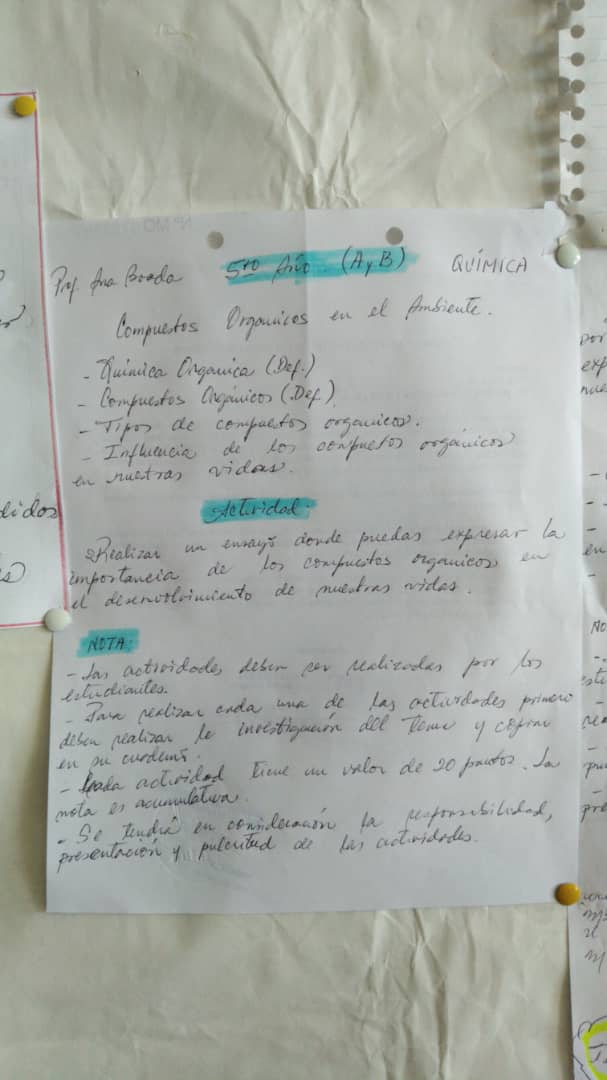 Prof. Ana Boada 5to Año. (A y B) QUÍMICA
Compuestos Organicos en el Ambiente.
- Química Organica (Def.)
- Compuestos Orgánicos (Def.)
- Tipos de compuestos organicos.
- Influencia de los compuestos orgánicos
en nuestras vidas.
Actividad:
Realizar un ensayo donde puedas expresar la
importancia de los compuestos organicos en
el desenvolvimiento de nuestras vidas.
NOTA:
- Las actividades deben ser realizadas por los
estudiantes.
- Para realizar cada una de las actividades primero
deben realizar la investigación del Tema y copiar
en su cuaderno.
- Cada actividad tiene un valor de 20 puntos. La
nota es acumulativa.
- Se tendrá en consideración la responsabilidad,
presentación y pulcritud de las actividades.